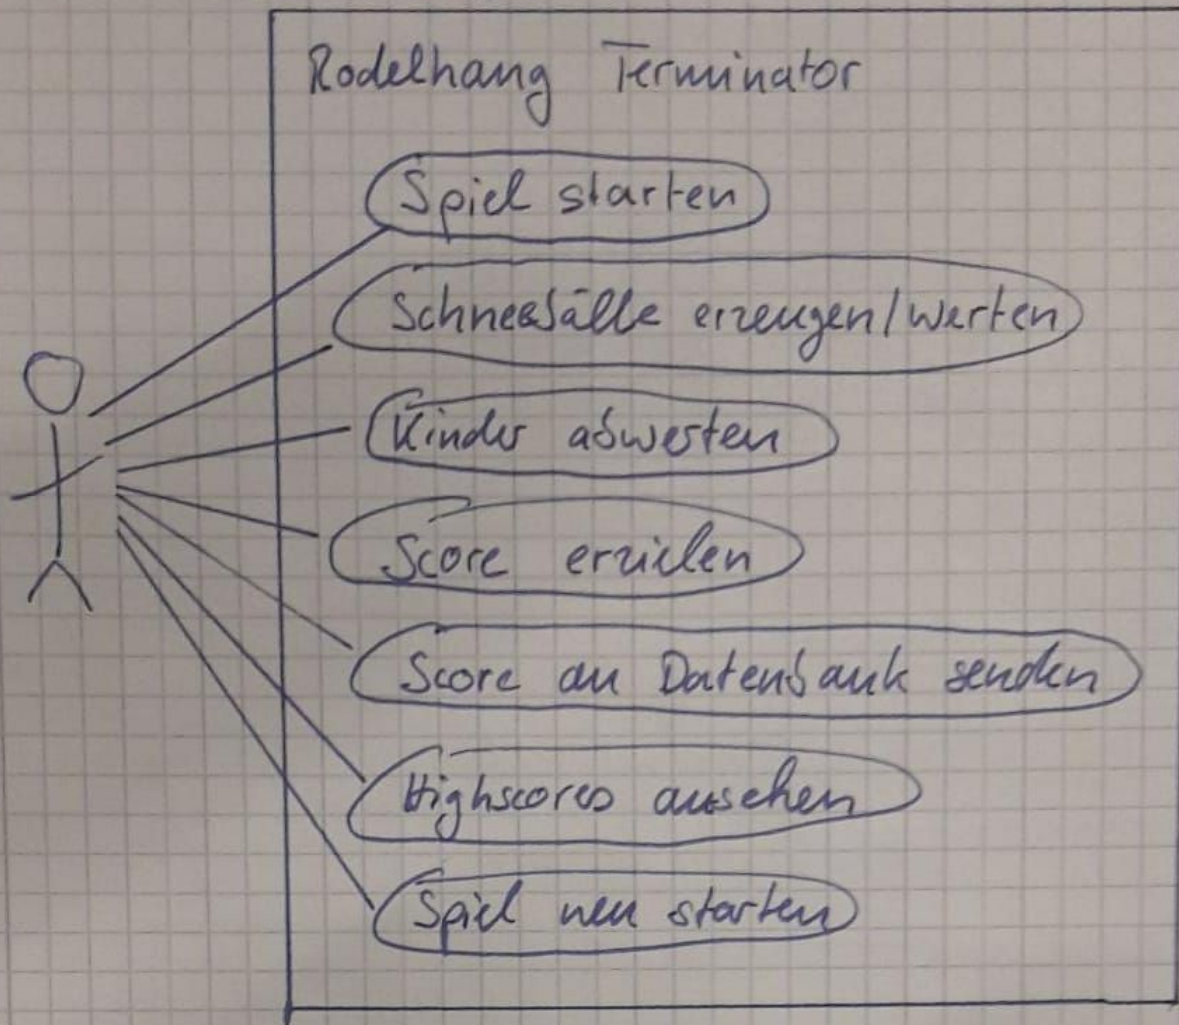 Rodelhang Terminator
Spiel starten
Schneebälle erzeugen/werfen
Kinder abwerfen
Score erzielen
Score an Datenbank senden
Highscores ansehen
Spiel neu starten